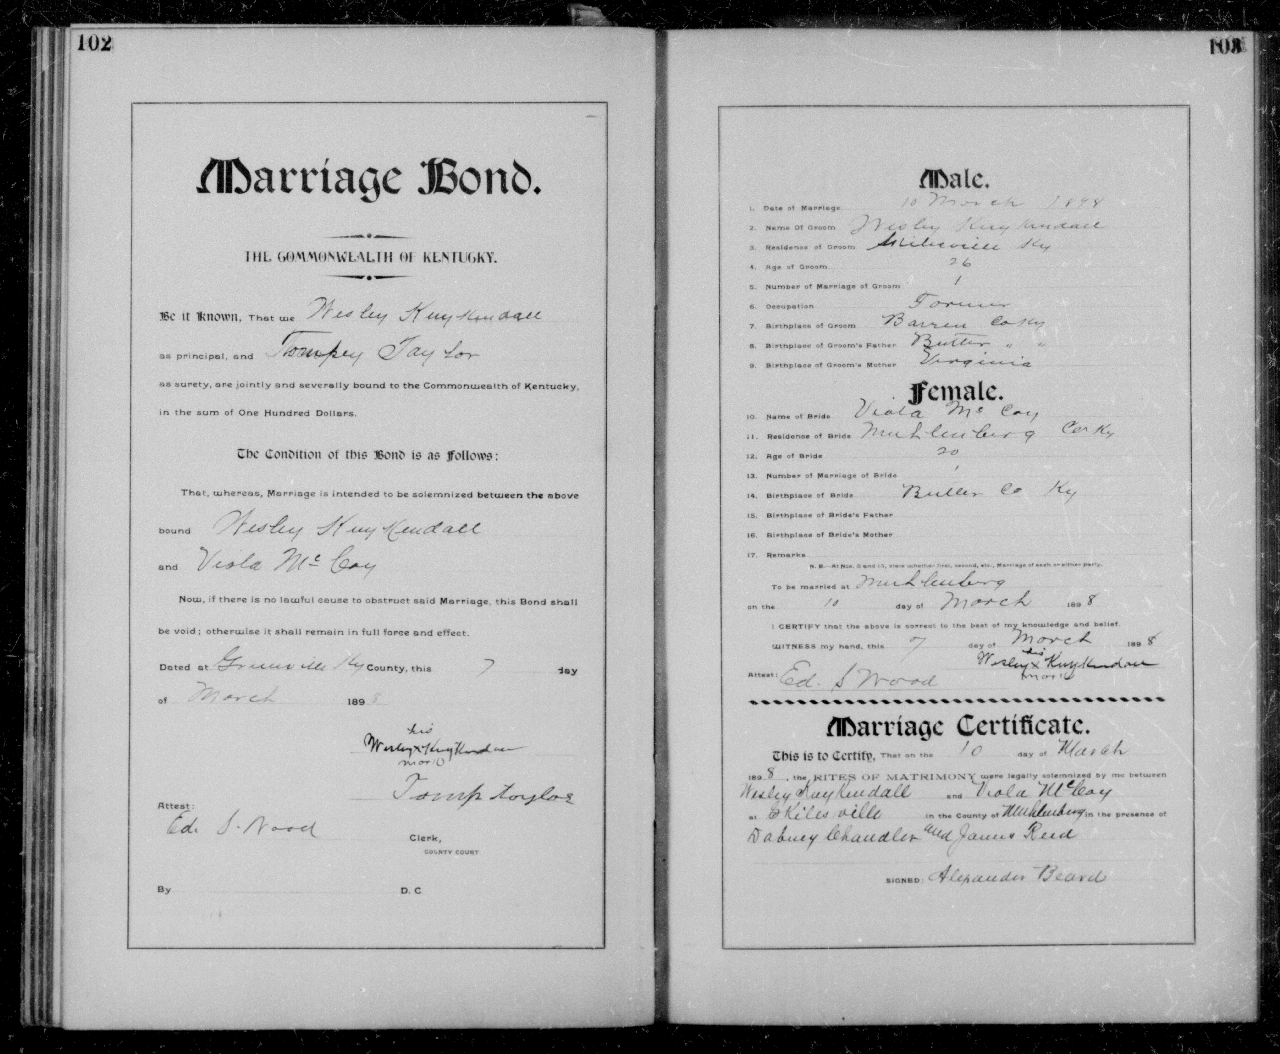 102
Marriage Bond.
THE COMMONWEALTH OF KENTUCKY.
Be it Known, That we Wesley Kuykendall
as principal, and Tompey Taylor
as surety, are jointly and severally bound to the Commonwealth of Kentucky,
in the sum of One Hundred Dollars.
The Condition of this Bond is as Follows:
That, whereas, Marriage is intended to be solemnized between the above
bound Wesley Kuykendall
and Viola Mc Coy
Now, if there is no lawful cause to obstruct said Marriage, this Bond shall
be void; otherwise it shall remain in full force and effect.
Dated at Greenville Ky County, this 7 day
of March 1898
his
Wesley x Kuykendall
mark
Tomp Taylor
Attest:
Ed. S. Wood
Clerk,
COUNTY COURT
By D. C
103
Male.
1. Date of Marriage 10 March 1898
2. Name Of Groom Wesley Kuykendall
3. Residence of Groom Skilesville Ky
4. Age of Groom 26
5. Number of Marriage of Groom 1
6. Occupation Farmer
7. Birthplace of Groom Barren Co Ky
8. Birthplace of Groom's Father Butler " "
9. Birthplace of Groom's Mother Virginia
Female.
10. Name of Bride Viola Mc Coy
11. Residence of Bride Muhlenberg Co Ky
12. Age of Bride 20
13. Number of Marriage of Bride 1
14. Birthplace of Bride Butler Co Ky
15. Birthplace of Bride's Father
16. Birthplace of Bride's Mother
17. Remarks
N. B.—At Nos. 5 and 13, state whether first, second, etc., Marriage of each or either party.
To be married at Muhlenberg
on the 10 day of March 1898
I CERTIFY that the above is correct to the best of my knowledge and belief.
WITNESS my hand, this 7 day of March 1898
his
Wesley x Kuykendall
mark
Attest: Ed. S Wood
Marriage Certificate.
This is to Certify, That on the 10 day of March
1898, the RITES OF MATRIMONY were legally solemnized by me between
Wesley Kuykendall and Viola McCoy
at Skilesville in the County of Muhlenberg in the presence of
Dabney Chandler and James Reid
SIGNED: Alexander Beard